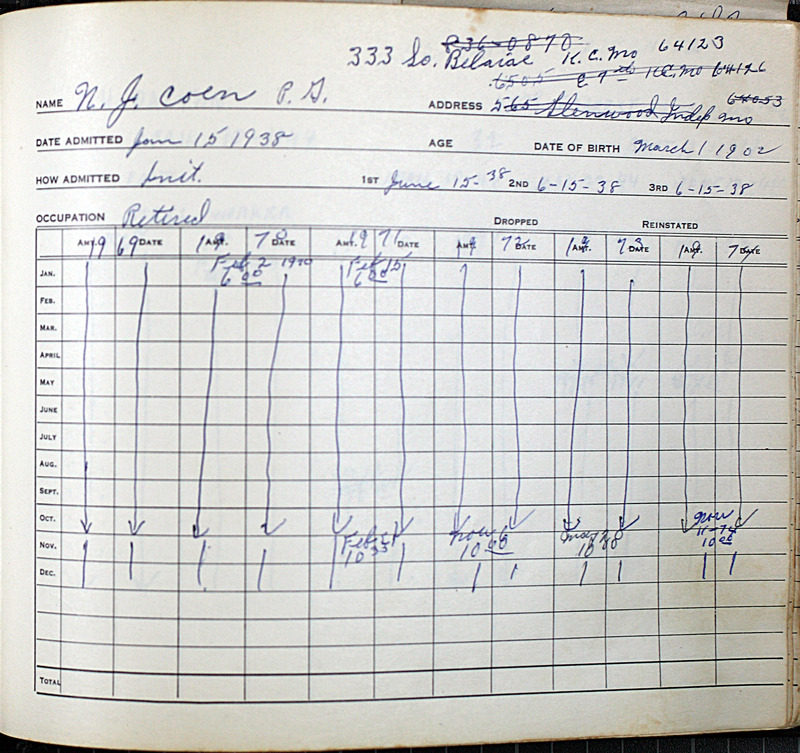 P-36-0870
333 So. Belaire K.C. Mo 64123
6505 E 9th K.C. Mo 64126
NAME N. J. Coen P. G. ADDRESS 565 Glenwood Indep Mo 64053
DATE ADMITTED Jan 15 1938 AGE DATE OF BIRTH March 1 1902
HOW ADMITTED Init. 1ST June 15-38 2ND 6-15-38 3RD 6-15-38
OCCUPATION Retired DROPPED REINSTATED
AMT. 19 69 DATE 19 AMT. 70 DATE AMT. 19 71 DATE 19 AMT. 72 DATE 19 AMT. 73 DATE 19 AMT. 74 DATE
JAN. Feb 2 1970 Feb 15
6 00 6 00
FEB.
MAR.
APRIL
MAY
JUNE
JULY
AUG.
SEPT.
OCT. Nov
11-74
NOV. Feb Nov 6 10 00
10 10 00 10
DEC.
TOTAL